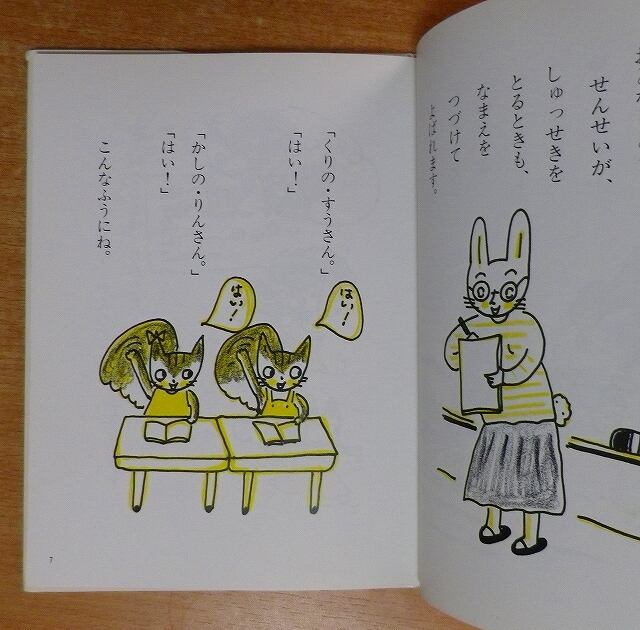 せんせいが、
しゅっせきを
とるときも、
なまえを
つづけて
よばれます。
「くりの・すうさん。」
「はい!」
「かしの・りんさん。」
「はい!」
こんなふうにね。
はい!
はい!
7